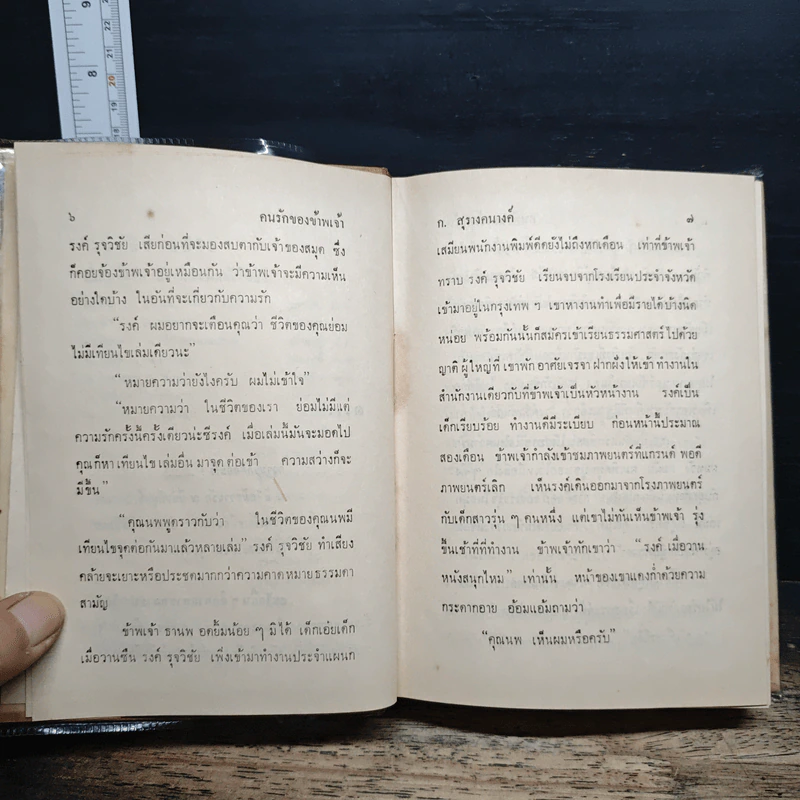 ๖ คนรักของข้าพเจ้า
รงค์ รุจวิชัย เสียก่อนที่จะมองสบตากับเจ้าของสมุด ซึ่ง
ก็คอยจ้องข้าพเจ้าอยู่เหมือนกัน ว่าข้าพเจ้าจะมีความเห็น
อย่างใดบ้าง ในอันที่จะเกี่ยวกับความรัก
“รงค์ ผมอยากจะเตือนคุณว่า ชีวิตของคุณย่อม
ไม่มีเทียนไขเล่มเดียวนะ”
“หมายความว่ายังไงครับ ผมไม่เข้าใจ”
“หมายความว่า ในชีวิตของเรา ย่อมไม่มีแต่
ความรักครั้งนี้ครั้งเดียวน่ะซีรงค์ เมื่อเล่มนี้มันจะมอดไป
คุณก็หาเทียนไขเล่มอื่นมาจุดต่อเข้า ความสว่างก็จะ
มีขึ้น”
“คุณนพพูดราวกับว่า ในชีวิตของคุณนพมี
เทียนไขจุดต่อกันมาแล้วหลายเล่ม” รงค์ รุจวิชัย ทำเสียง
คล้ายจะเยาะหรือประชดมากกว่าความคาดหมายธรรมดา
สามัญ
ข้าพเจ้า ธานพ อดยิ้มน้อย ๆ มิได้ เด็กเอ๋ยเด็ก
เมื่อวานซืน รงค์ รุจวิชัย เพิ่งเข้ามาทำงานประจำแผนก
ก. สุรางคนางค์ ๗
เสมียนพนักงานพิมพ์ดีดยังไม่ถึงหกเดือน เท่าที่ข้าพเจ้า
ทราบ รงค์ รุจวิชัย เรียนจบจากโรงเรียนประจำจังหวัด
เข้ามาอยู่ในกรุงเทพ ๆ เขาหางานทำเพื่อมีรายได้บ้างนิด
หน่อย พร้อมกันนั้นก็สมัครเข้าเรียนธรรมศาสตร์ไปด้วย
ญาติผู้ใหญ่ที่เขาพักอาศัยเจรจาฝากฝังให้เข้าทำงานใน
สำนักงานเดียวกับที่ข้าพเจ้าเป็นหัวหน้างาน รงค์เป็น
เด็กเรียบร้อย ทำงานดีมีระเบียบ ก่อนหน้านี้ประมาณ
สองเดือน ข้าพเจ้ากำลังเข้าชมภาพยนตร์ที่แกรนด์ พอดี
ภาพยนตร์เลิก เห็นรงค์เดินออกมาจากโรงภาพยนตร์
กับเด็กสาวรุ่น ๆ คนหนึ่ง แต่เขาไม่ทันเห็นข้าพเจ้า รุ่ง
ขึ้นเช้าที่ที่ทำงาน ข้าพเจ้าทักเขาว่า “รงค์ เมื่อวาน
หนังสนุกไหม” เท่านั้น หน้าของเขาแดงก่ำด้วยความ
กระดากอาย อ้อมแอ้มถามว่า
“คุณนพ เห็นผมหรือครับ”
6
8
18
19
20
21
22